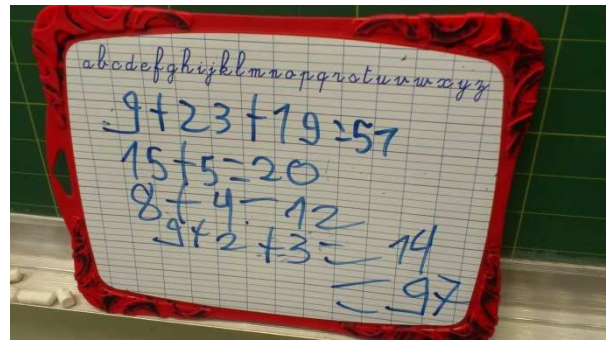 abcdefghijklmnopqrstuvwxyz
9+23+19=51
15+5=20
8+4=12
9+2+3=14
=97